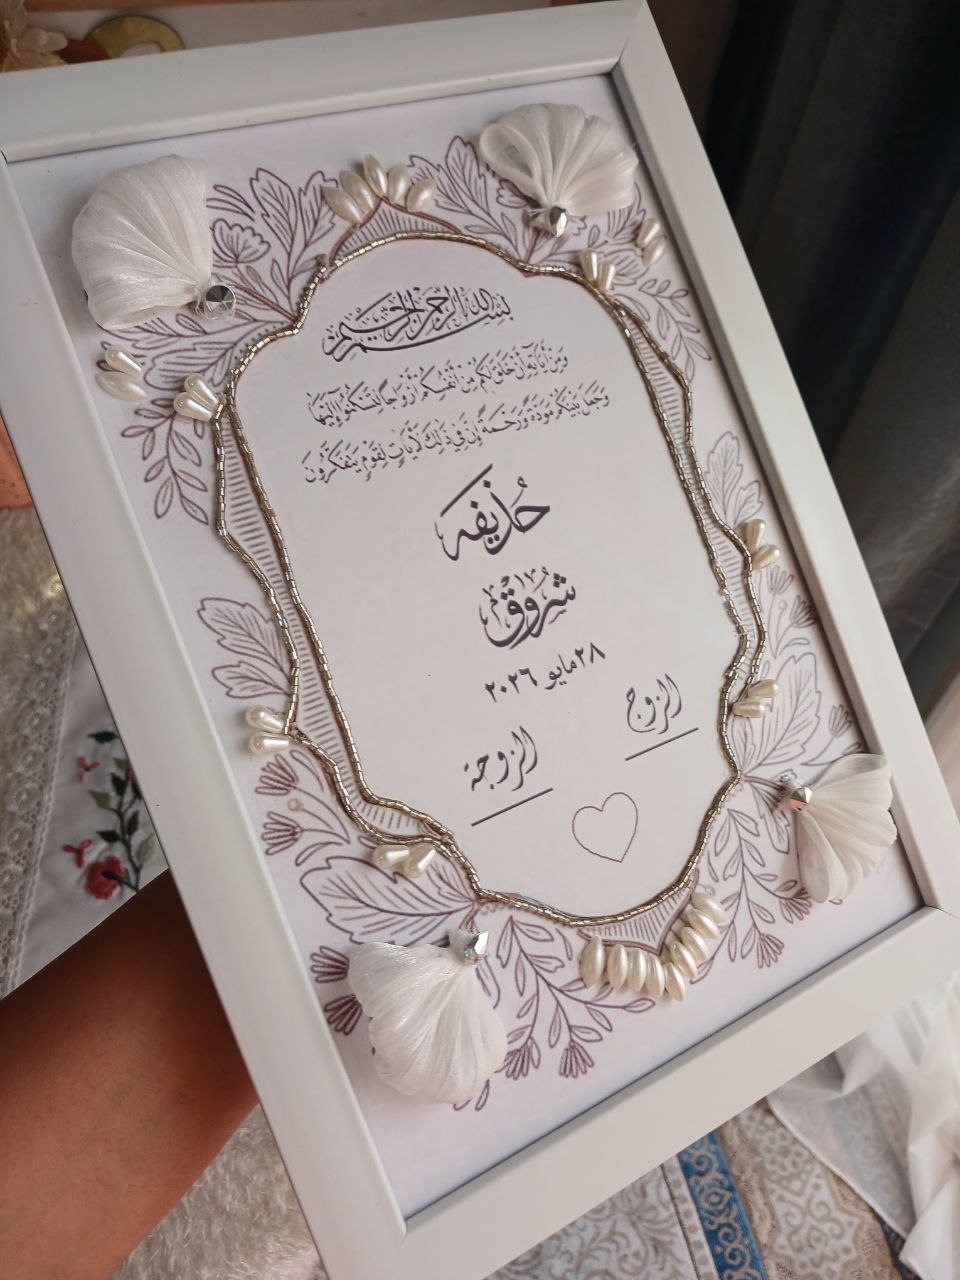 بسم الله الرحمن الرحيم
وَمِنْ آيَاتِهِ أَنْ خَلَقَ لَكُم مِّنْ أَنفُسِكُمْ أَزْوَاجًا لِّتَسْكُنُوا إِلَيْهَا
وَجَعَلَ بَيْنَكُم مَّوَدَّةً وَرَحْمَةً إِنَّ فِي ذَلِكَ لَآيَاتٍ لِّقَوْمٍ يَتَفَكَّرُونَ
حُذيفه
شُروق
٢٨ مايو ٢٠٢٦
الزوج
الزوجة